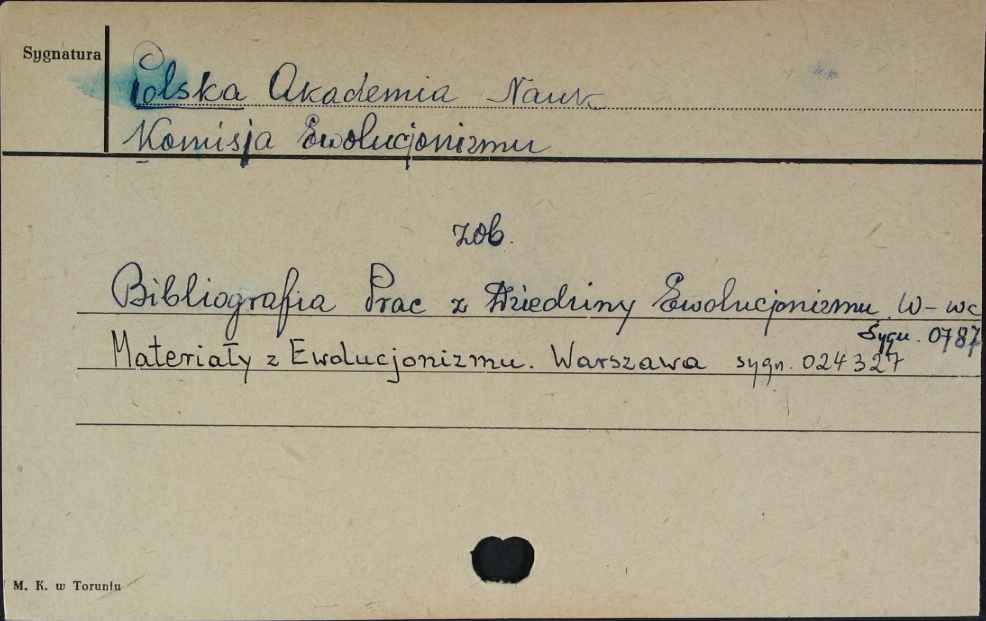 Sygnatura
Polska Akademia Nauk
Komisja Ewolucjonizmu
zob.
Bibliografia Prac z Dziedziny Ewolucjonizmu. W-wa
Sygn. 0787
Materiały z Ewolucjonizmu. Warszawa sygn. 024327
M. K. w Toruniu